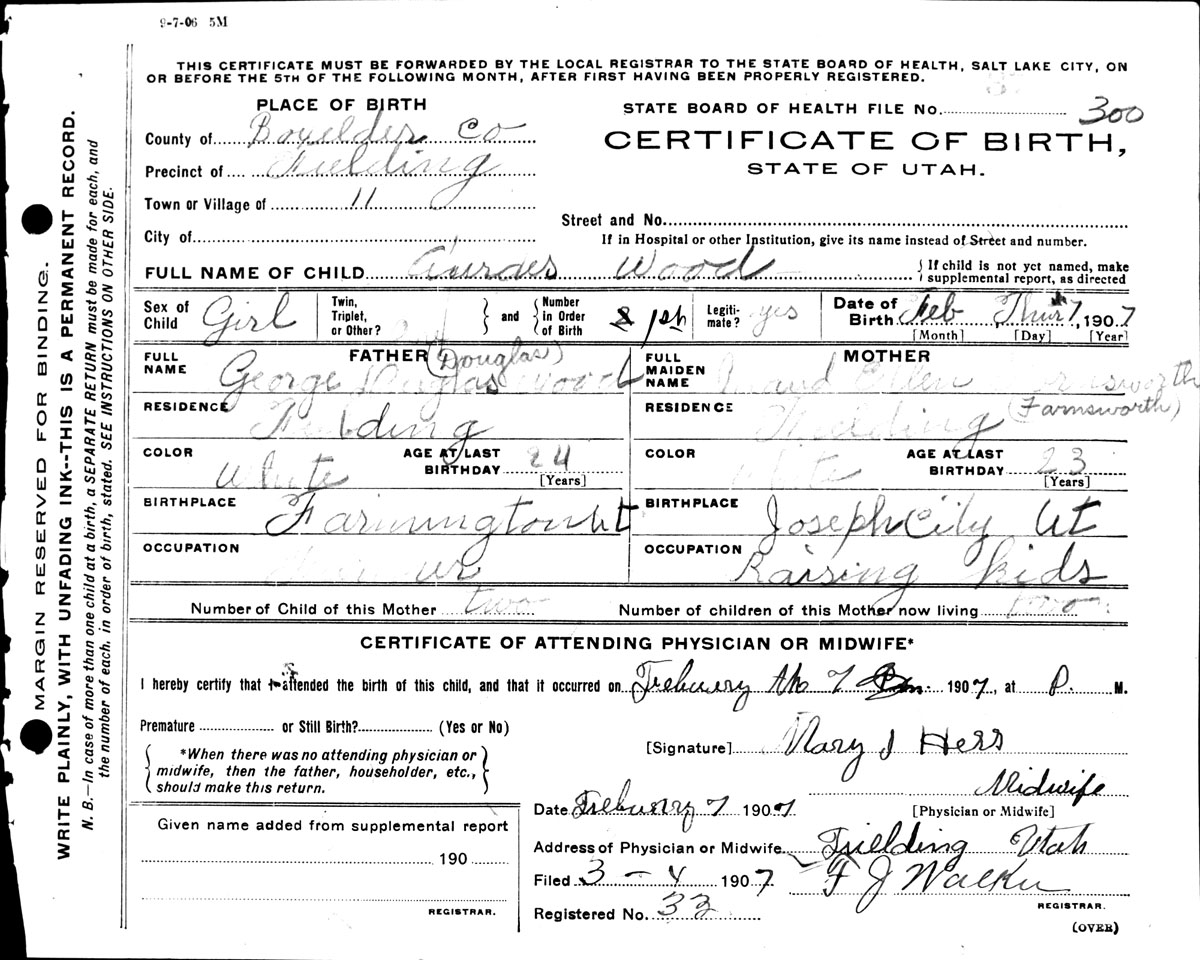 9-7-06 5M
THIS CERTIFICATE MUST BE FORWARDED BY THE LOCAL REGISTRAR TO THE STATE BOARD OF HEALTH, SALT LAKE CITY, ON
OR BEFORE THE 5TH OF THE FOLLOWING MONTH, AFTER FIRST HAVING BEEN PROPERLY REGISTERED.
PLACE OF BIRTH
County of Boxelder Co
Precinct of Fielding
Town or Village of 11
City of
STATE BOARD OF HEALTH FILE No. 300
CERTIFICATE OF BIRTH,
STATE OF UTAH.
Street and No.
If in Hospital or other Institution, give its name instead of Street and number.
FULL NAME OF CHILD Wood
If child is not yet named, make supplemental report, as directed
Sex of Child Girl
Twin, Triplet, or Other?
and
Number in Order of Birth 1st
Legiti-mate? yes
Date of Birth Feb 7, 1907
[Month] [Day] [Year]
FATHER
FULL NAME George Duglas Wood (Douglas)
RESIDENCE Fielding
COLOR White
AGE AT LAST BIRTHDAY 24
[Years]
BIRTHPLACE Farmington Ut
OCCUPATION
MOTHER
FULL MAIDEN NAME Maud Ellen (Farnsworth)
RESIDENCE Fielding
COLOR White
AGE AT LAST BIRTHDAY 23
[Years]
BIRTHPLACE Joseph City Ut
OCCUPATION Raising kids
Number of Child of this Mother two
Number of children of this Mother now living two
CERTIFICATE OF ATTENDING PHYSICIAN OR MIDWIFE*
I hereby certify that I attended the birth of this child, and that it occurred on Trebuery the 7 1907, at P. M.
Premature or Still Birth? (Yes or No)
*When there was no attending physician or
midwife, then the father, householder, etc.,
should make this return.
[Signature] Mary J Hess
Midwife
[Physician or Midwife]
Date Trebuery 7 1907
Address of Physician or Midwife Fielding Utah
Filed 3 - 4 1907 F J Walker
REGISTRAR.
Registered No. 33
(OVER)
Given name added from supplemental report
190
REGISTRAR.
MARGIN RESERVED FOR BINDING.
WRITE PLAINLY, WITH UNFADING INK--THIS IS A PERMANENT RECORD.
N. B.—In case of more than one child at a birth, a SEPARATE RETURN must be made for each, and
the number of each, in order of birth, stated. SEE INSTRUCTIONS ON OTHER SIDE.